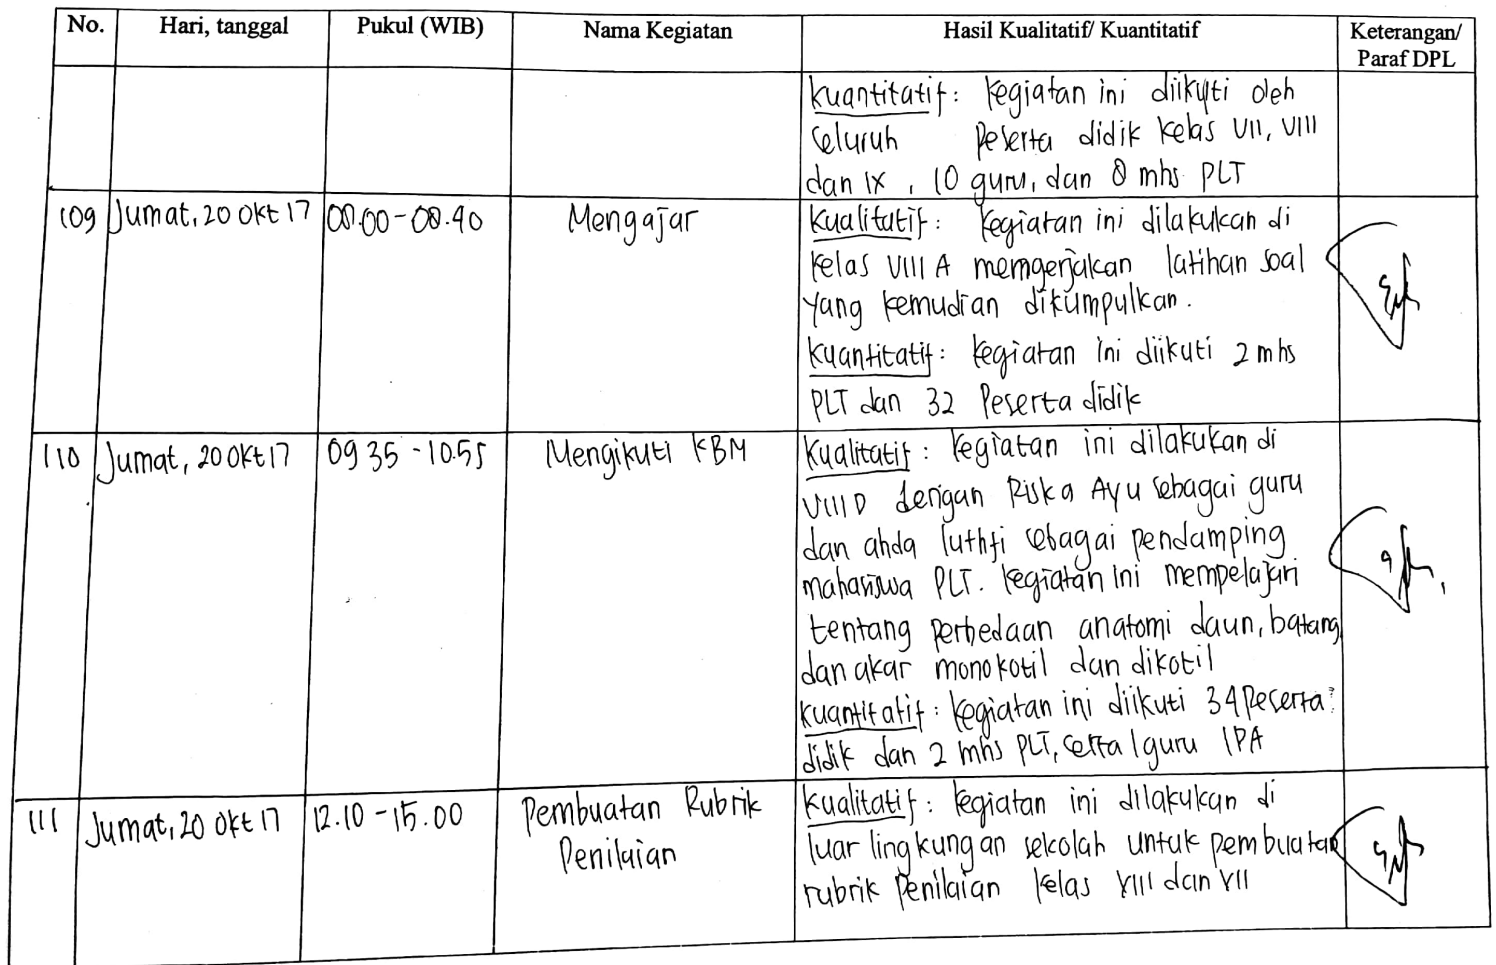 No. Hari, tanggal Pukul (WIB) Nama Kegiatan Hasil Kualitatif/ Kuantitatif Keterangan/
Paraf DPL
Kuantitatif: kegiatan ini diikuti oleh
seluruh peserta didik kelas VII, VIII
dan IX, 10 guru, dan 8 mhs PLT
109 Jumat, 20 Okt 17 08.00-08.40 Mengajar Kualitatif: kegiatan ini dilakukan di
kelas VIII A memgerjakan latihan soal
yang kemudian dikumpulkan.
Kuantitatif: kegiatan ini diikuti 2 mhs
PLT dan 32 peserta didik
110 Jumat, 20 Okt 17 09 35 - 10.55 Mengikuti KBM Kualitatif: kegiatan ini dilakukan di
VIII D dengan Riska Ayu sebagai guru
dan ahda luthfi sebagai pendamping
mahasiswa PLT. kegiatan ini mempelajari
tentang perbedaan anatomi daun, batang
dan akar monokotil dan dikotil
Kuantitatif: kegiatan ini diikuti 34 peserta
didik dan 2 mhs PLT, serta 1 guru IPA
111 Jumat, 20 Okt 17 12.10 - 15.00 Pembuatan Rubrik
Penilaian
Kualitatif: kegiatan ini dilakukan di
luar lingkungan sekolah untuk pembuatan
rubrik penilaian kelas VIII dan VII